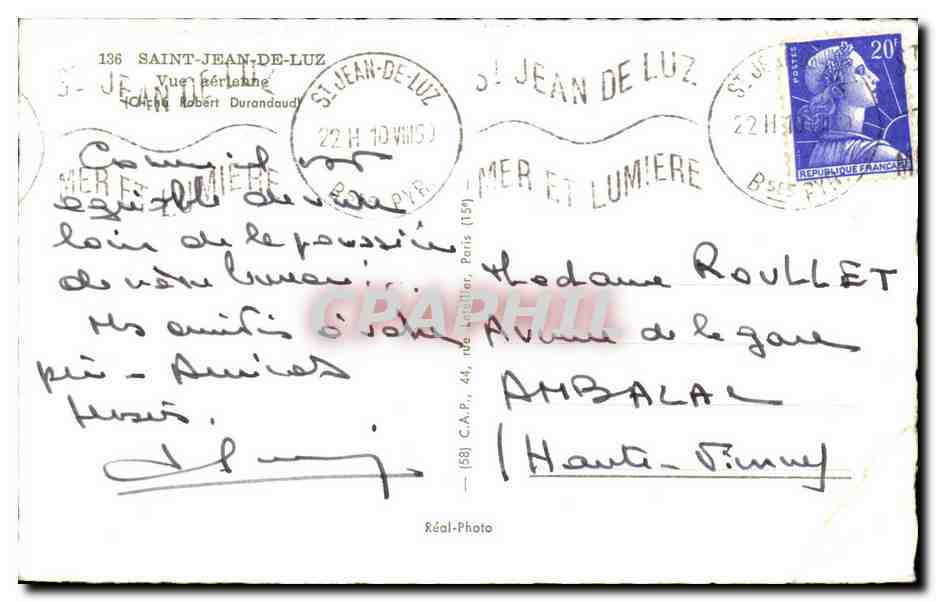 136 SAINT-JEAN-DE-LUZ
Vue aérienne
(Cliché Robert Durandaud)
ST JEAN DE LUZ
MER ET LUMIERE
ST JEAN-DE-LUZ
22 H 10 VIII 59
Bses PYR.
ST JEAN DE LUZ
MER ET LUMIERE
22 H 10
Bses PYR.
POSTES
20F
REPUBLIQUE FRANCAISE
agréable de vivre
loin de la poussière
de votre bureau!...
Mes amitiés à votre
père - Amicales
Madame ROULLET
Avenue de la gare
AMBALAC
(Haute-Vienne)
CPAPHIL
(58) C.A.P., 44, rue Letellier, Paris (15e)
Réal-Photo